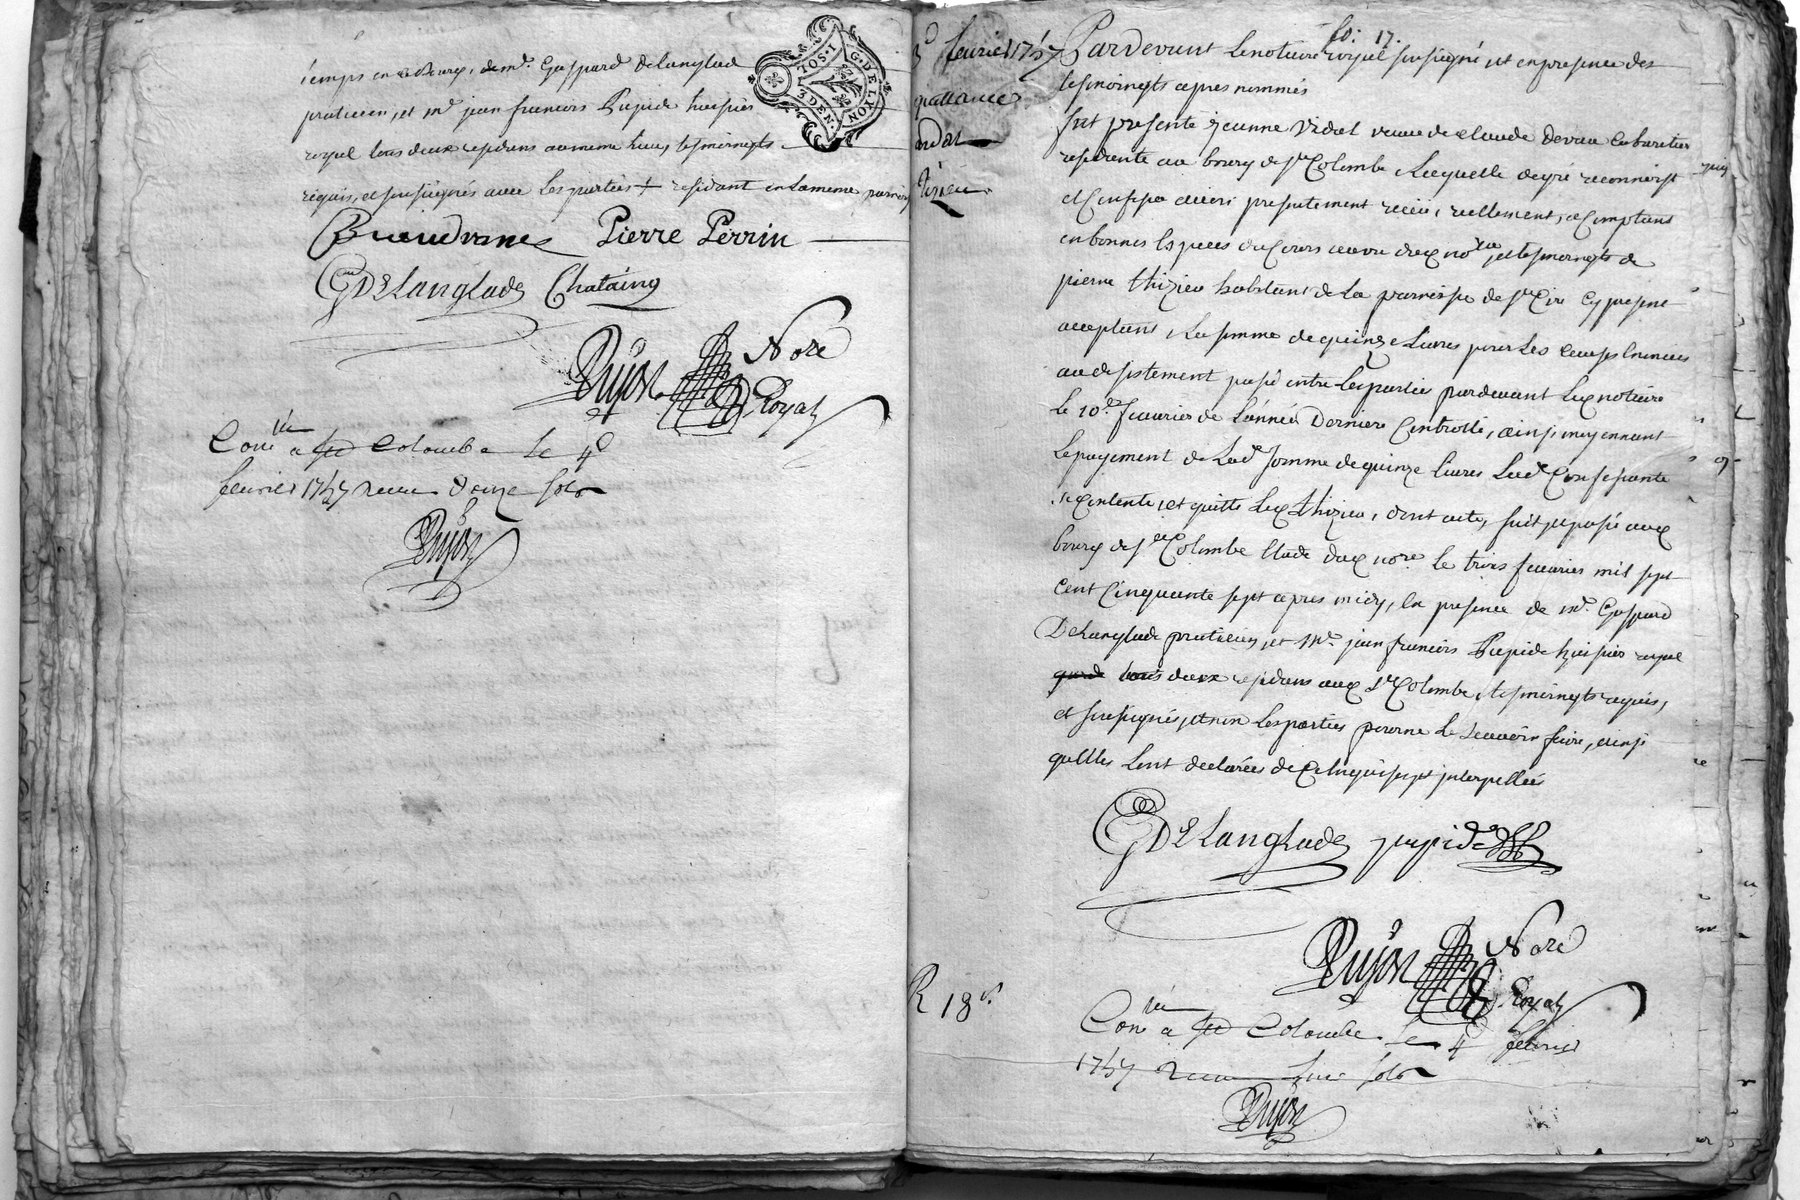 temps au d. Bourg, de mr. Gaspard Delanglad
praticien, et mr jean francois Pupide huissier
royal tous deux residens au meme lieu, tesmoingts
requis, et soussignés avec les parties + residant en la meme parroisse
Pierre Perrin
G DELangLade Chataing
Pujon Nore
Royal
Conlle a Ste Colombe le 4e
febvrier 1757 receu douze sols
Pujon
G. DE LYON
1 SOL
3 DEN
fo: 17.
3e fevrier 1757
quittance
vidal
thizieu
Pardevant le notaire royal soussigné et en presence des
tesmoingts apres nommés
fut presente jeanne Vidal veuve de claude Devau cabaretier
residente au bourg de ste Colombe, Laquelle de gré reconnoist
et Confesse avoir presentement receu, reellement, et Comptant
en bonnes Especes du Cours aveu dud. nore et tesmoingts de
pierre thizieu habitant de la parroisse de st Cir Cy present
acceptant, La somme de quinze Livres pour les causes Enoncées
au desistement passé entre Les parties pardevant Led. notaire
le 10e. fevrier de L'année Derniere Controllé, ainsi moyennant
le payement de Lade somme de quinze livres Lade Confessante
se Contente, et quitte Led. thizieu, dont acte, fait et passé aud.
bourg de ste Colombe Etude dud. nore. le trois fevrier mil sept
cent Cinquante sept apres midy, En presence de mr. Gaspard
DeLanglade praticien, et Mre jean francois Pupide huissier royal
tous deux residens aud. ste Colombe, tesmoingts requis,
et soussignés, et non Les parties pour ne le scavoir faire, ainsi
qu'Elles L'ont declarées de Ce Enquis, et interpellées
G DELangLade pupide
Pujon Nore
Royal
R 18s
Conlle a Ste Colombe le 4 febvrier
1757 receu sols
Pujon